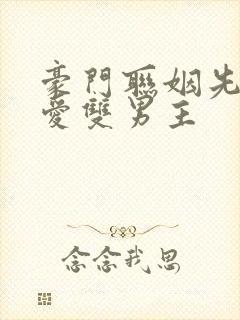 豪門聯姻先
愛雙男主
念念我思